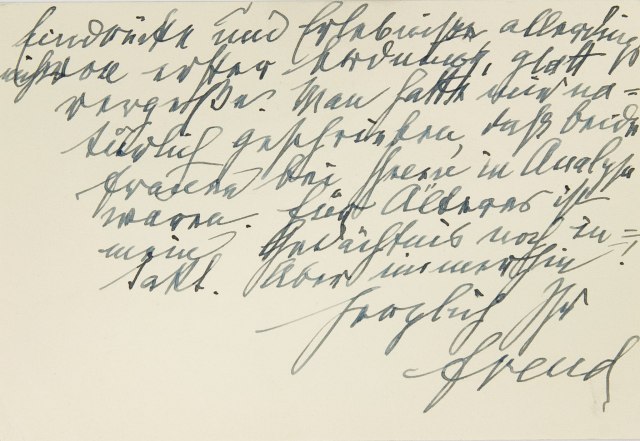 Eindrücke und Erlebnisse allerdings
nicht von erster Ordnung, glatt
vergesse. Man hatte mir na=
türlich geschrieben, daß beide
Frauen bei Ihnen in Analyse
waren. Für Älteres ist
mein Gedächtnis noch in=
takt. Aber immerhin!
Herzlich Ihr
Freud